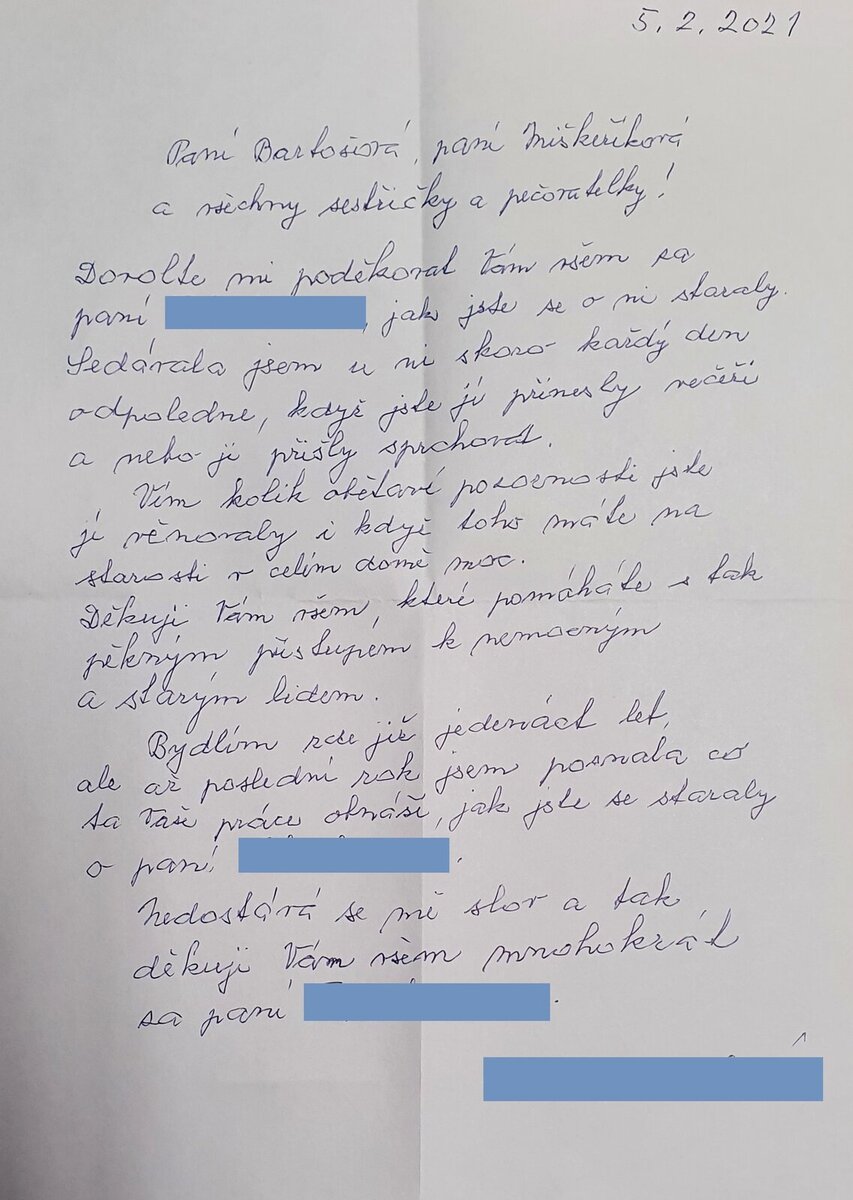 5. 2. 2021
Paní Bartošová, paní Miškeříková
a všechny sestřičky a pečovatelky!
Dovolte mi poděkovat Vám všem za
paní , jak jste se o ni staraly.
Sedávala jsem u ní skoro každý den
odpoledne, když jste jí přinesly večeři
a nebo ji přišly sprchovat.
Vím kolik obětavé pozornosti jste
jí věnovaly i když toho máte na
starosti v celím domě moc.
Děkuji Vám všem, které pomáháte s tak
pěkným přístupem k nemocným
a starým lidem.
Bydlím zde již jedenáct let,
ale až poslední rok jsem poznala co
ta Vaše práce obnáší, jak jste se staraly
o paní .
Nedostává se mě slov a tak
děkuji Vám všem mnohokrát
za paní .